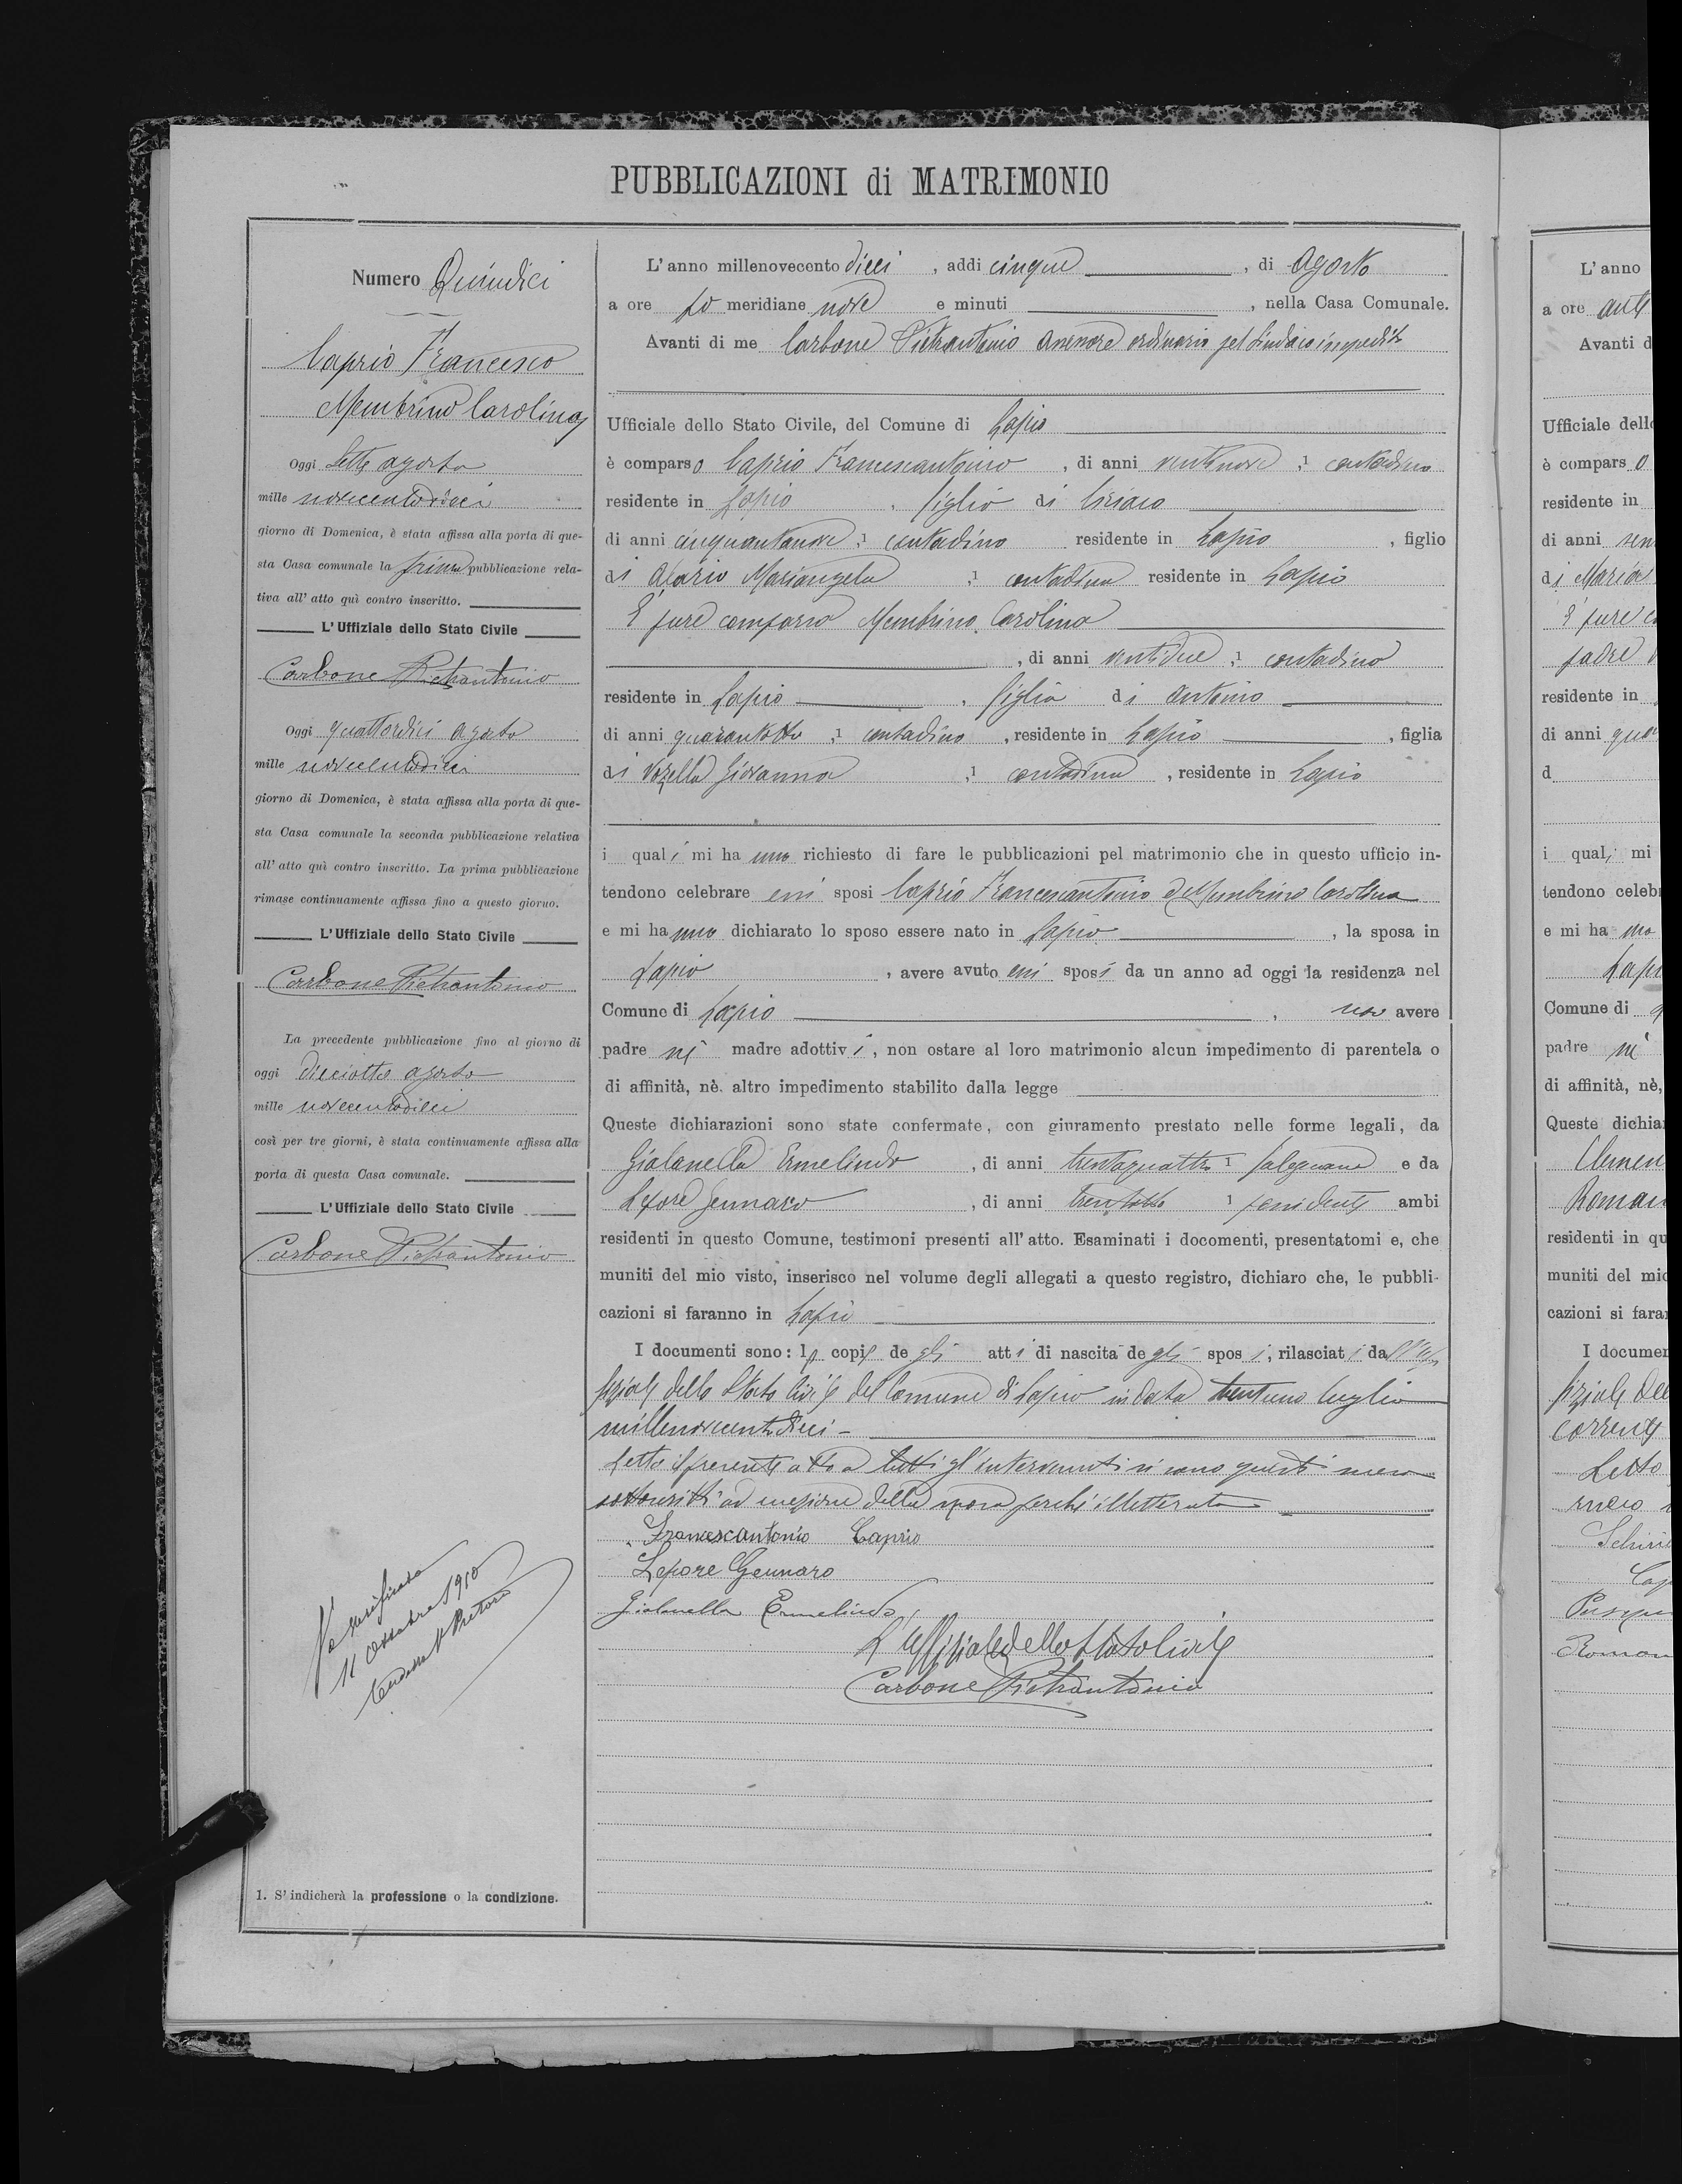 PUBBLICAZIONI di MATRIMONIO
Numero Quindici
Caprio Francesco
Membrino Carolina
Oggi Sette agosto
mille novecentodieci
giorno di Domenica, è stata affissa alla porta di que-
sta Casa comunale la prima pubblicazione rela-
tiva all' atto quì contro inscritto.
L'Uffiziale dello Stato Civile
Carbone Pietrantonio
Oggi quattordici agosto
mille novecentodieci
giorno di Domenica, è stata affissa alla porta di que-
sta Casa comunale la seconda pubblicazione relativa
all' atto quì contro inscritto. La prima pubblicazione
rimase continuamente affissa fino a questo giorno.
L'Uffiziale dello Stato Civile
Carbone Pietrantonio
La precedente pubblicazione fino al giorno di
oggi dieciotto agosto
mille novecentodieci
così per tre giorni, è stata continuamente affissa alla
porta di questa Casa comunale.
L'Uffiziale dello Stato Civile
Carbone Pietrantonio
Verificato
11 Ottobre 1910
Pretore
1. S' indicherà la professione o la condizione.
L' anno millenovecento dieci , addi cinque , di Agosto
a ore po meridiane nove e minuti , nella Casa Comunale.
Avanti di me Carbone Pietrantonio Assessore ordinario pel Sindaco impedito
Ufficiale dello Stato Civile, del Comune di Lapio
è comparso Caprio Francescantonio , di anni ventinove ,1 contadino
residente in Lapio , figlio di Ciriaco
di anni cinquantanove ,1 contadino residente in Lapio , figlio
di Oario Mariangela ,1 contadina residente in Lapio
E' pure comparsa Membrino Carolina
, di anni ventidue ,1 contadina
residente in Lapio , figlia di Antonio
di anni quarantotto ,1 contadino , residente in Lapio , figlia
di Vozella Giovanna ,1 contadina , residente in Lapio
i quali mi hanno richiesto di fare le pubblicazioni pel matrimonio che in questo ufficio in-
tendono celebrare essi sposi Caprio Francescantonio e Membrino Carolina
e mi hanno dichiarato lo sposo essere nato in Lapio , la sposa in
Lapio , avere avuto essi sposi da un anno ad oggi la residenza nel
Comune di Lapio , non avere
padre nè madre adottivi, non ostare al loro matrimonio alcun impedimento di parentela o
di affinità, nè. altro impedimento stabilito dalla legge
Queste dichiarazioni sono state confermate, con giuramento prestato nelle forme legali, da
Gialanella Ermelindo , di anni trentaquattro 1 falegname e da
Lepore Gennaro , di anni trentotto 1 possidente ambi
residenti in questo Comune, testimoni presenti all' atto. Esaminati i docomenti, presentatomi e, che
muniti del mio visto, inserisco nel volume degli allegati a questo registro, dichiaro che, le pubbli-
cazioni si faranno in Lapio
I documenti sono: le copie degli atti di nascita degli sposi, rilasciati dall'Uf
fiziale dello Stato Civile del Comune di Lapio in data trentuno luglio
millenovecentodieci
Letto il presente atto a tutti gl'intervenuti si sono questi meco
sottoscritti ad eccezione della sposa perchè illetterata
Francescantonio Caprio
Lepore Gennaro
Gialanella Ermelindo
L'Uffiziale dello Stato Civile
Carbone Pietrantonio
L' anno
a ore ante
Avanti d
Ufficiale dello
è compars o
residente in
di anni
di Maria
E' pure
padre
residente in
di anni
d
i quali mi
tendono celeb
e mi ha nno
Lapi
Comune di
padre nè
di affinità, nè,
Queste dichia
Clemen
Roman
residenti in qu
muniti del mio
cazioni si fara
I documen
fiziale del
corrente
Letto
Roman